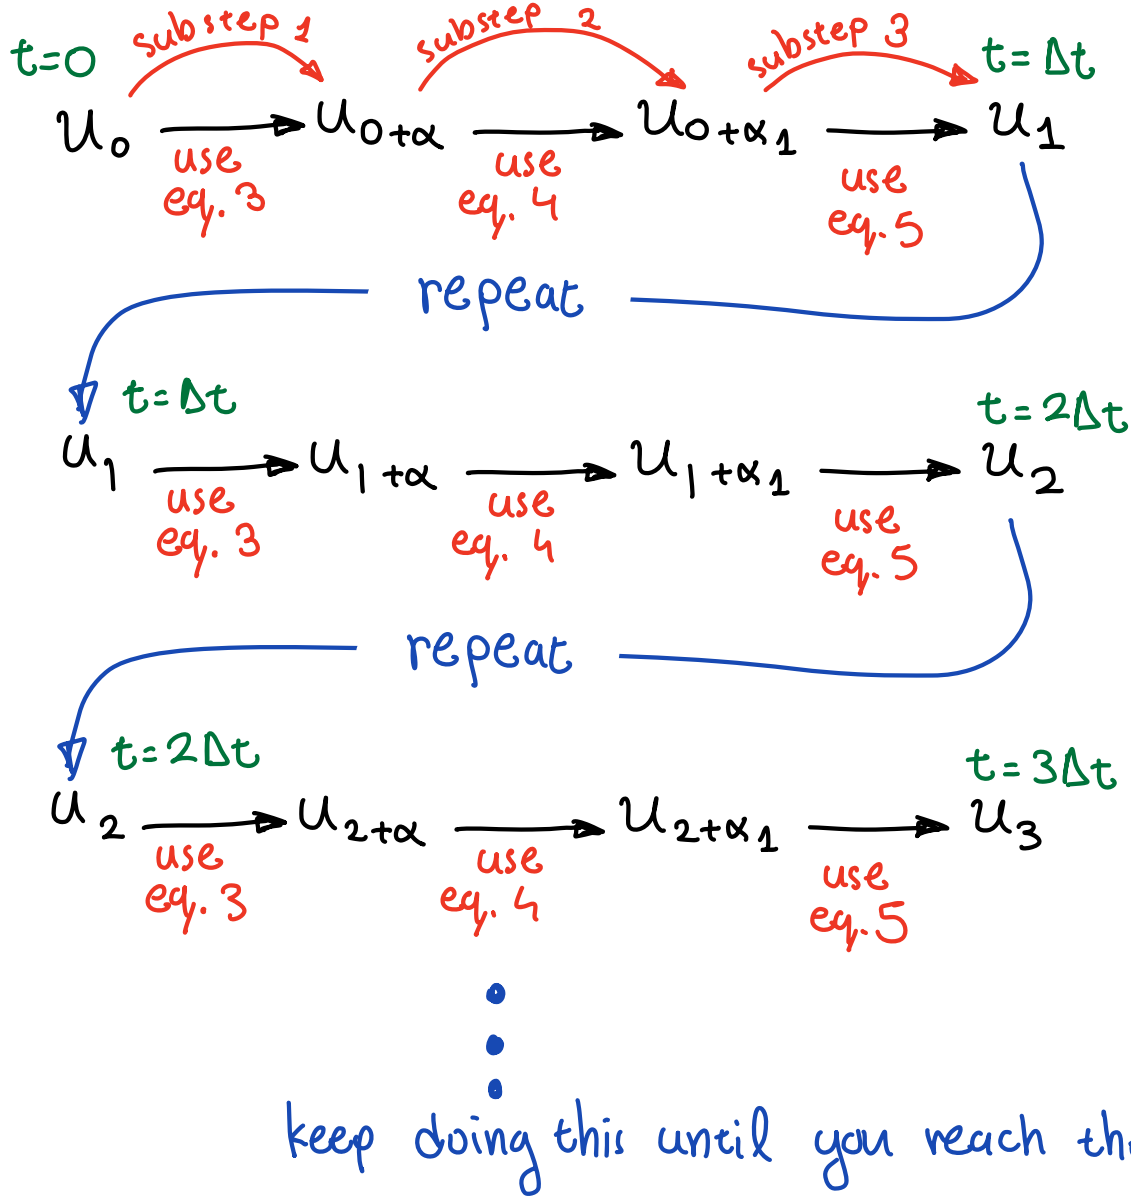 substep 1 substep 2 substep 3
t=0 t=Δt
u₀ u₀₊α u₀₊α₁ u₁
use use use
eq. 3 eq. 4 eq. 5
repeat
t=Δt t=2Δt
u₁ u₁₊α u₁₊α₁ u₂
use use use
eq. 3 eq. 4 eq. 5
repeat
t=2Δt t=3Δt
u₂ u₂₊α u₂₊α₁ u₃
use use use
eq. 3 eq. 4 eq. 5
keep doing this until you reach